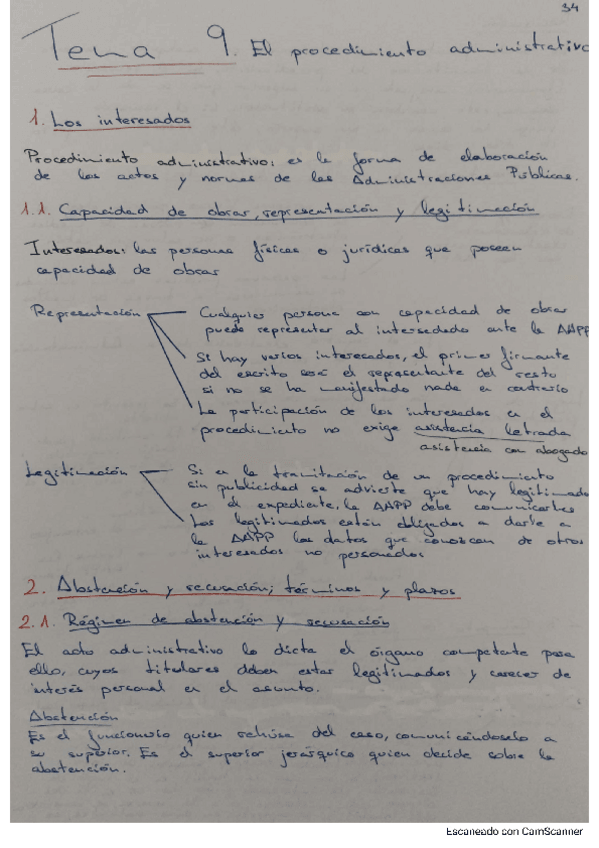 34
Tema 9. El procedimiento administrativo
1. Los interesados
Procedimiento administrativo: es la forma de elaboración
de los actos y normas de las Administraciones Públicas.
1.1. Capacidad de obrar, representación y legitimación
Interesados: las personas físicas o jurídicas que poseen
capacidad de obrar
Representación
Cualquier persona con capacidad de obrar
puede representar al intersedado ante la AAPP
Si hay varios interesados, el primer firmante
del escrito será el representante del resto
si no se ha manifestado nada en contrario
La participación de los interesados en el
procedimiento no exige asistencia letrada
asistencia con abogado
Legitimación
Si en la tramitación de un procedimiento
sin publicidad se advierte que hay legitimado
en el expediente, la AAPP debe comunicarles
Los legitimados están obligados a darle a
la AAPP los datos que conozcan de otros
interesados no personados
2. Abstención y recusación; términos y plazos
2.1. Régimen de abstención y recusación
El acto administrativo lo dicta el órgano competente para
ello, cuyos titulares deben estar legitimados y carecer de
interés personal en el asunto.
Abstención
Es el funcionario quien rehúse del caso, comunicándoselo a
su superior. Es el superior jerárquico quien decide sobre la
abstención.
Escaneado con CamScanner